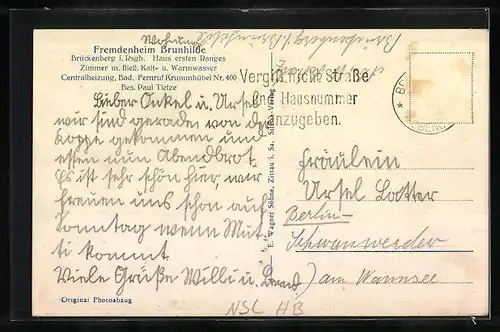 Wohnung
Brückenberg i. Rsgb. Brunhilde
Fremdenheim Brunhilde
Brückenberg i. Rsgb. Haus ersten Ranges
Zimmer m. fließ. Kalt- u. Warmwasser
Centralheizung, Bad. Fernruf Krummhübel Nr. 400
Bes. Paul Tietze
Lieber Onkel u. Ursel
wir sind gerade von der
Koppe gekommen und
essen nun Abendbrot.
Es ist sehr schön hier, wir
freuen uns schon auf
Sonntag wenn Mut-
ti kommt.
Viele Grüße Willi u. Bernd
Original Photoabzug
E. Wagner Söhne, Zittau i. Sa.
Vergiß nicht Straße
und Hausnummer
anzugeben.
Fräulein
Ursel Lotter
Berlin-
Schwanwerder
am Wannsee
NSL HB